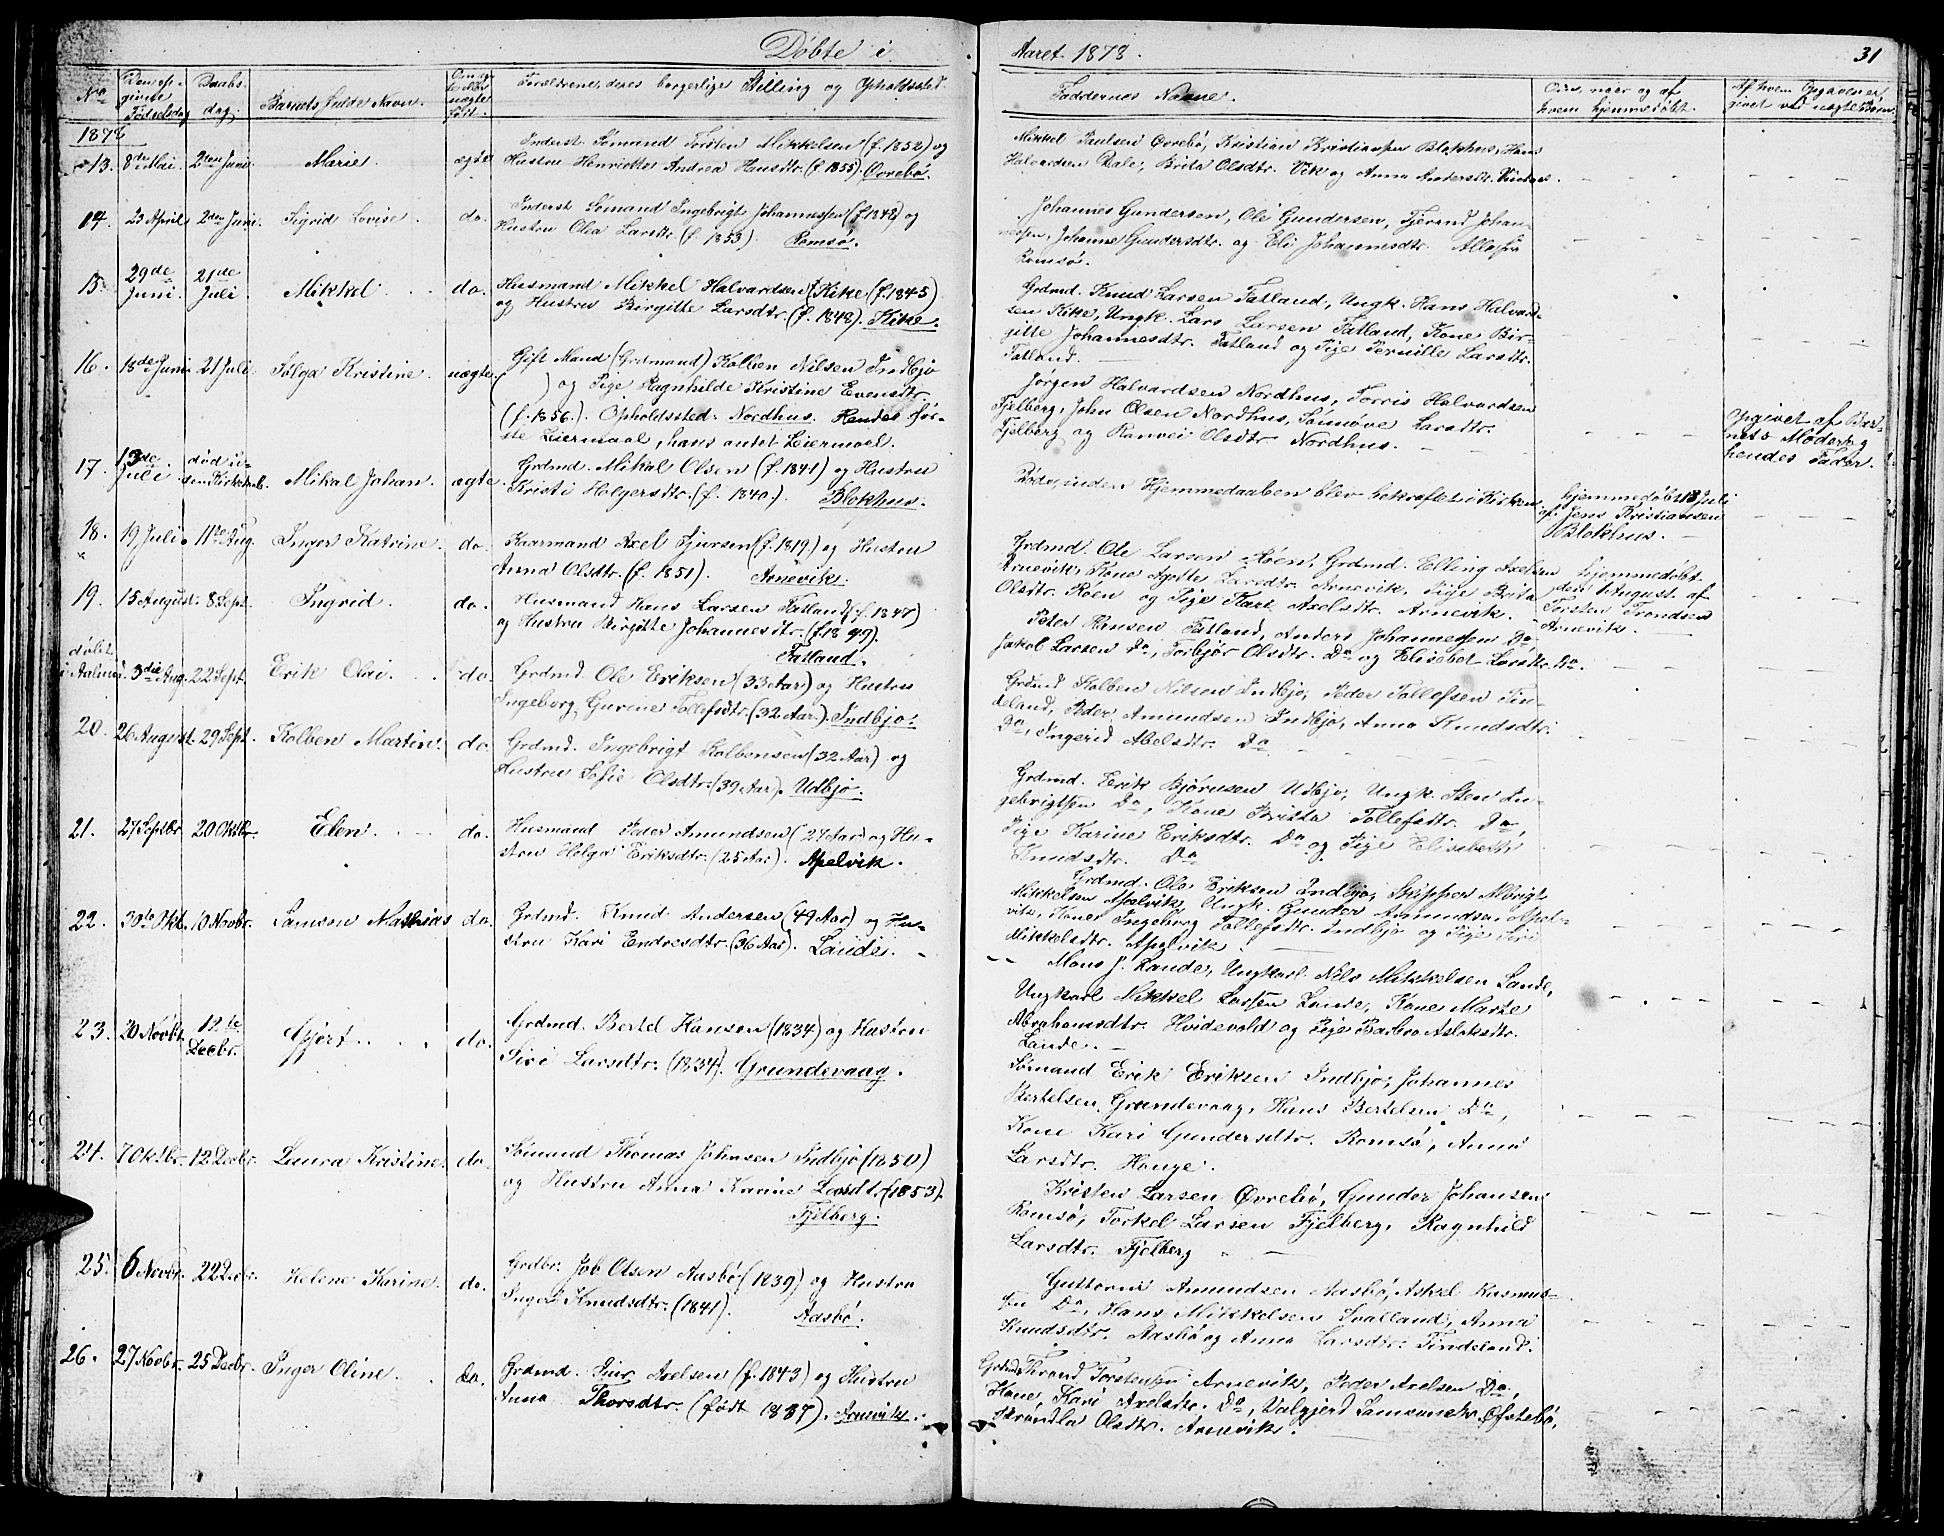 Døbte i
Aaret 1878.
31
No
Den opgivne Fødselsdag
Daabsdag
Barnets fulde Navn.
Om ægte eller uægte født.
Forældrene, deres borgerlige Stilling og Opholdssted.
Faddernes Navne.
Om, naar og af hvem hjemmedøbt.
Af hvem Opgaven er givet ved uægte Børn.
1878
13. 8de Mai. 2den Juni. Marie ægte Inderst Sømand Torsten Mikkelsen (f. 1852) og
Hustru Henrikke Andrea Hansdtr. (f. 1855). Øvrebø.
Mikkel Paulsen Øvrebø, Kristian Kristiansen Blokhus, Hans
Halvardsen Dale, Brita Olsdtr. Vik og Anna Andersdtr.
14. 23 April 2den Juni. Sigrid Lovise. do. Inderst Sømand Ingebrigt Johannessen (f. 1848) og
Hustru Olea Larsdtr. (f. 1853). Romsø.
Johannes Gundersen, Ole Gundersen, Tjerand Johan-
nessen, Johanne Gundersdtr. og Eli Johannesdtr. Alle fra
Romsø.
15. 29de Juni. 21de Juli. Mikkel do. Husmand Mikkel Halvardsen Kike (f. 1845)
og Hustru Birgitte Larsdtr. (f. 1848). Kike.
Grdmd. Knud Larsen Fatland, Ungk. Hans Halvard-
sen Kike, Ungk. Lars Larsen Fatland, Kone Bir-
gitte Johannesdtr. Fatland og Pige Pernille Larsdtr.
Fatland.
16. 18de Juni. 21 Juli. Solga Kristine. uægte Gift Mand (Grdmand) Kolben Nilsen Indbjo
( ) og Pige Ragnhilde Kristine Evensdtr.
(f. 1856). Opholdssted: Nordhus. Hendes før-
ste Leiermaal, hans andet Leiermaal.
Jørgen Halvardsen Nordhus, Torris Halvardsen
Fjelberg, John Olsen Nordhus, Sønnøve Larsdtr.
Fjelberg og Ranvei Olsdtr. Nordhus.
Opgivet af Bar-
nets Moder og
hendes Fader.
17. 13de Juli død u- Mikal Johan. ægte Grdmd. Mikal Olsen (f. 1841) og Hustru
Kristi Holgersdtr. (f. 1840.) Blokhus.
Døde, inden Hjemmedaaben blev bekræftet i Kirken.
hjemmedøbt 13 Juli
af Jens Kristiansen
Blokhus.
18. 19 Juli. 11te Aug. Inger Katrine. do. Kaarmand Axel Sjursen (f. 1819) og Hustru
Anna Olsdtr. (f. 1851). Arnevik.
Grdmd. Ole Larsen Røen, Grdmd. Elling Axelsen
Arnevik, Kone Agathe Larsdtr. Arnevik, Pige Brita
Olsdtr. Røen og Pige Kari Axelsdtr. Arnevik.
hjemmedøbt
den 1 August. af
Torsten Trondsen
Arnevik.
19. 15 August. 8 Sept. Ingrid. do. Husmand Hans Larsen Fatland (f. 1847)
og Hustru Birgitte Johannesdtr. (f. 1849).
Fatland.
Peter Hansen Fatland, Anders Johannessen Do
Jakob Larsen Do, Torbjør Olsdtr. Do og Elisebet Larsdtr. Do.
døbt
3die Aug. 22 Sept. Erik Olai. do. Grdmd. Ole Eriksen (33 Aar) og Hustru
Ingeborg Gurine Tollefsdtr. (32 Aar). Indbjo.
Grdmd Kolben Nilsen Indbjo, Peder Tollefsen Tin-
deland, Peder Amundsen Indbjo, Anna Knudsdtr.
Do, Ingerid Abelsdtr. Do
20. 26 August. 29 Sept. Kolben Martin. do. Grdmd. Ingebrigt Kolbensen (32 Aar) og
Hustru Sofie Olsdtr. (39 Aar). Udbjo.
Grdmd. Erik Bjørnsen Udbjo, Ungk. Sten In-
gebrigtsen Do, Kone Krista Tollefsdtr. Do,
Pige Karine Eriksdtr. Do og Pige Elisabeth
Knudsdtr. Do
21. 27 Septbr. 20 Oktbr. Elen do. Husmand Peder Amundsen (27 Aar) og Hu-
stru Helga Eriksdtr. (25 Aar). Apelvik.
Grdmd. Ole Eriksen Indbjo, Skipper Albrigt
Mikkelsen Apelvik, Ungk. Gunder Amundsen Apel-
vik, Kone Ingeborg Tollefsdtr. Indbjo og Pige Siri
Mikkelsdtr. Apelvik.
22. 30te Okt. 10 Novbr. Samson Mathias do. Grdmd. Knud Andersen (49 Aar) og Hu-
stru Kari Endresdtr. (36 Aar). Lande.
Mons J. Lande, Ungkarl Nils Mikkelsen Lande,
Ungkarl Mikkel Larsen Lande, Kone Marte
Abrahamsdtr. Hvidevold og Pige Barbro Aslaksdtr.
Lande.
23. 20 Novbr. 12te Decbr. Gjert do. Grdmd. Bertel Hansen (1834) og Hustru
Siri Larsdtr. (1834). Grundevaag.
Sømand Erik Eriksen Indbjo, Johannes
Bertelsen Grundevaag, Hans Bertelsen Do,
Kone Kari Gundersdtr. Romsø, Anna
Larsdtr. Hauge.
24. 7 Oktbr. 12 Decbr. Laura Kristine. do. Sømand Thomas Johnsen Indbjo (1850)
og Hustru Anna Karine Larsdtr. (1853).
Fjelberg.
Kristen Larsen Øvrebø, Gunder Johansen
Romsø, Torkel Larsen Fjelberg, Ragnhild
Larsdtr. Fjelberg
25. 6 Novbr. 22 Decbr. Helene Karine. do. Grdbr. Job Olsen Aasbø (1839) og Hustru
Inger Knudsdtr. (1841). Aasbø.
Guttorm Amundsen Aasbø, Askel Rasmus-
sen Do, Hans Mikkelsen Svalland, Anna
Knudsdtr. Aasbø og Anna Larsdtr. Tindeland.
26. 27 Novbr. 25 Decbr. Inger Oline. do. Grdmd. Siur Axelsen (f. 1843) og Hustru
Anna Thorsdtr. (født 1837). Arnevik.
Grdmd Tkrond Torstensen Arnevik, Peder Axelsen Do,
Kone Kari Axelsdtr. Do, Valgjerd Samsonsdtr. Øfstebø,
Olsdtr. Arnevik.